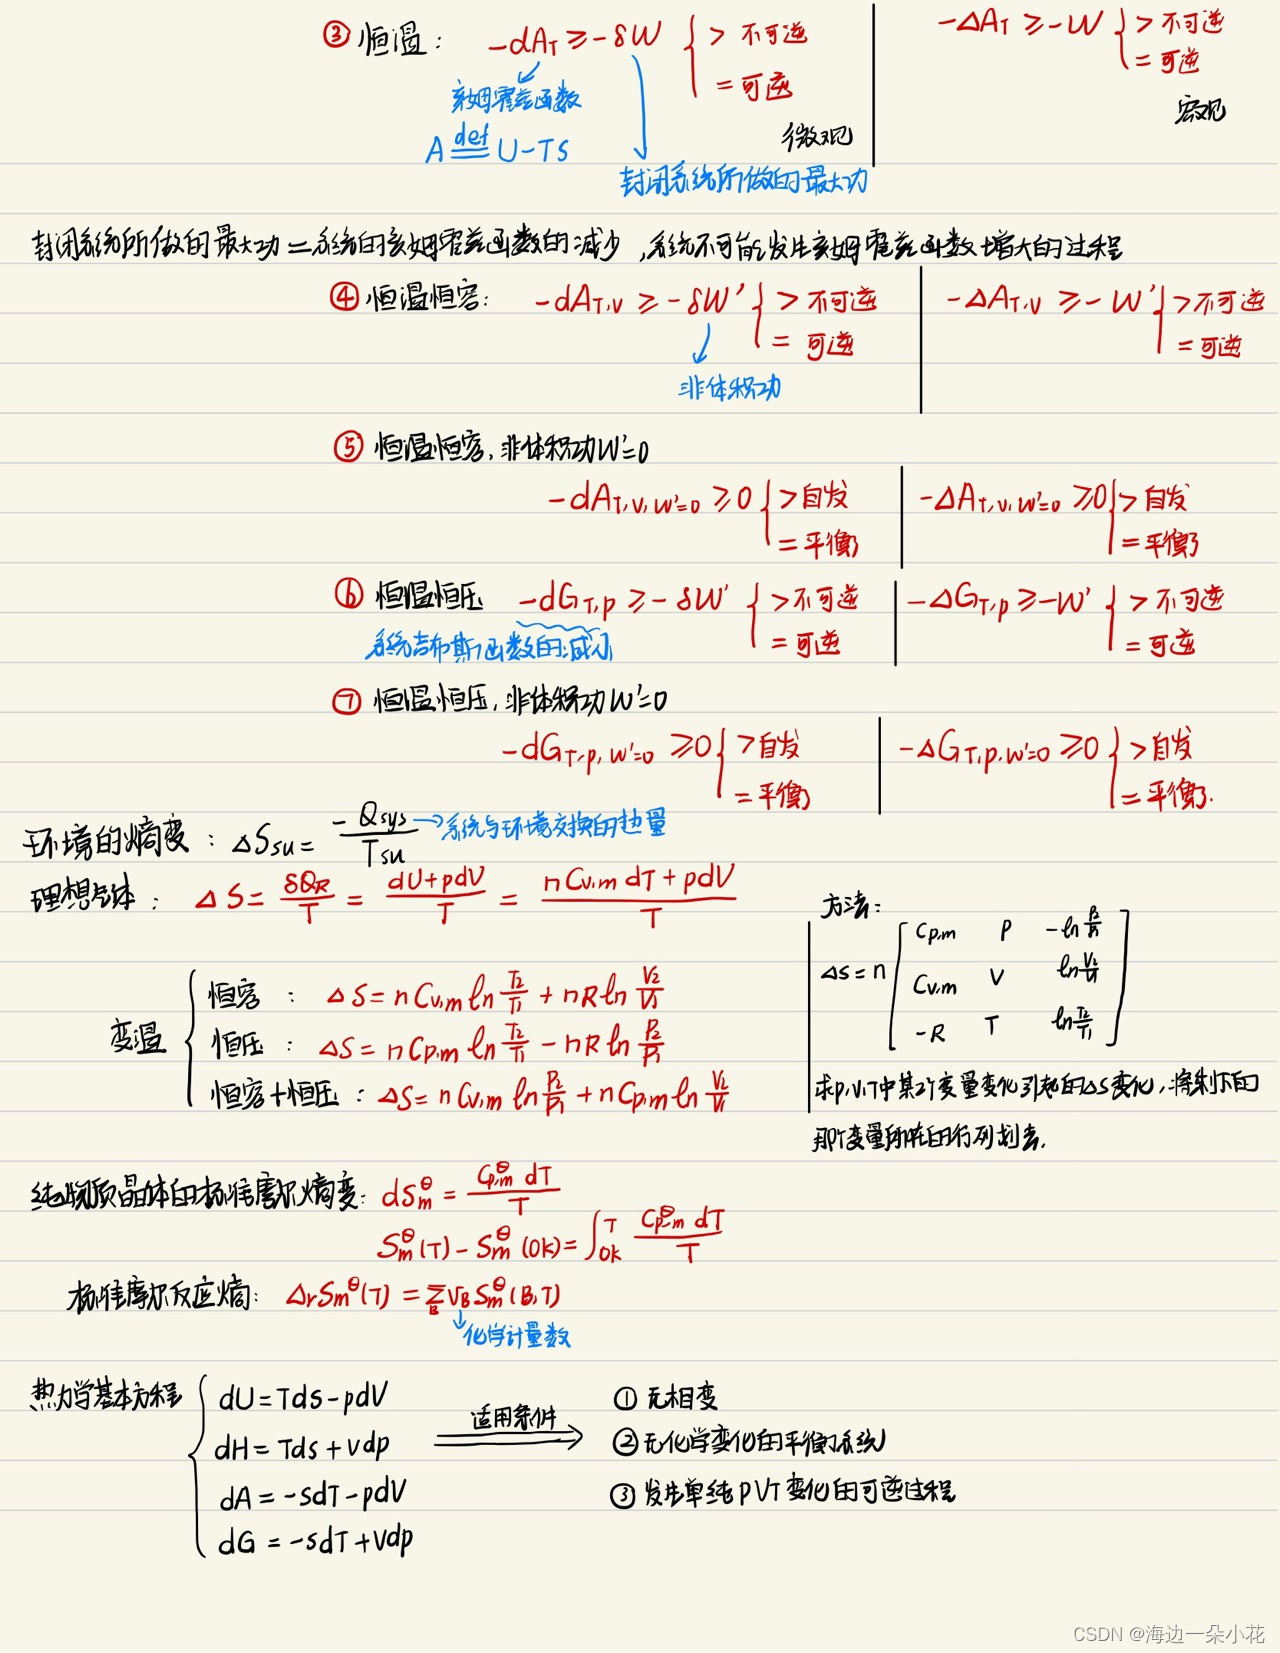 ③ 恒温: -dA_T ≥ -δW { > 不可逆 | -ΔA_T ≥ -W { > 不可逆
= 可逆 | = 可逆
亥姆霍兹函数
A def U-TS 微观 宏观
封闭系统所做的最大功
封闭系统所做的最大功=系统的亥姆霍兹函数的减少,系统不可能发生亥姆霍兹函数增大的过程
④ 恒温恒容: -dA_T,V ≥ -δW' { > 不可逆 | -ΔA_T,V ≥ -W' { > 不可逆
= 可逆 | = 可逆
非体积功
⑤ 恒温恒容,非体积功W'=0
-dA_T,V,W'=0 ≥ 0 { > 自发 | -ΔA_T,V,W'=0 ≥ 0 { > 自发
= 平衡 | = 平衡
⑥ 恒温恒压 -dG_T,p ≥ -δW' { > 不可逆 | -ΔG_T,p ≥ -W' { > 不可逆
系统吉布斯函数的减小 = 可逆 | = 可逆
⑦ 恒温恒压,非体积功W'=0
-dG_T,p,W'=0 ≥ 0 { > 自发 | -ΔG_T,p,W'=0 ≥ 0 { > 自发
= 平衡 | = 平衡.
环境的熵变: ΔSsu = -Qsys/Tsu → 系统与环境交换的热量
理想气体: ΔS = δQ_R/T = (dU+pdV)/T = (nCv,m dT + pdV)/T
变温
恒容: ΔS = nCv,m ln T₂/T₁ + nR ln V₂/V₁
恒压: ΔS = nCp,m ln T₂/T₁ - nR ln P₂/P₁
恒容+恒压: ΔS = nCv,m ln P₂/P₁ + nCp,m ln V₂/V₁
方法:
Cp,m P -ln P₂/P₁
ΔS = n Cv,m V ln V₂/V₁
-R T ln T₂/T₁
求p,V,T中某2个变量变化引起的ΔS变化,将剩下的
那个变量所在的行列划去.
纯物质晶体的标准摩尔熵变: dS_m^θ = C_p,m^θ dT/T
S_m^θ(T) - S_m^θ(0K) = ∫_0K^T C_p,m^θ dT/T
标准摩尔反应熵: ΔrSm^θ(T) = Σ_B ν_B S_m^θ(B,T)
化学计量数
热力学基本方程
dU = Tds - pdV
dH = Tds + Vdp
dA = -sdT - pdV
dG = -sdT + Vdp
适用条件
① 无相变
② 无化学变化的平衡系统
③ 发生单纯PVT变化的可逆过程
CSDN @海边一朵小花